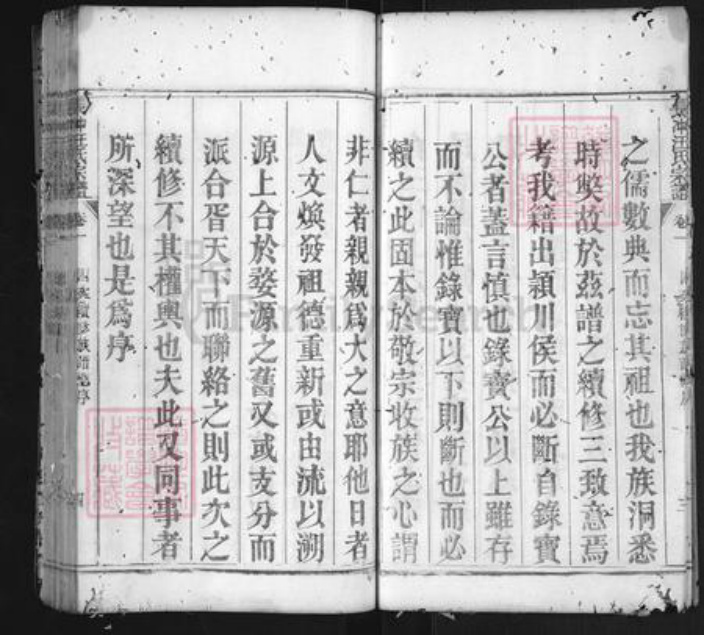 之儒數典而忘其祖也我族洞悉
時獘故於茲譜之續修三致意焉
考我籍出潁川侯而必斷自錄寶
公者蓋言慎也錄寶公以上雖存
而不論惟錄寶以下則斷也而必
續之此固本於敬宗收族之心謂
非仁者親親為大之意耶他日者
人文煥發祖德重新或由流以溯
源上合於婺源之舊又或支分而
派合胥天下而聯絡之則此次之
續修不其權輿也夫此又同事者
所深望也是為序
汪氏宗譜
卷一
FamilySearch